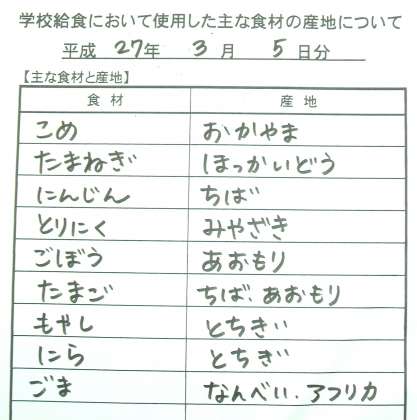 学校給食において使用した主な食材の産地について
平成 27年 3月 5日分
【主な食材と産地】
食材 産地
こめ おかやま
たまねぎ ほっかいどう
にんじん ちば
とりにく みやざき
ごぼう あおもり
たまご ちば、あおもり
もやし とちぎ
にら とちぎ
ごま なんべい、アフリカ